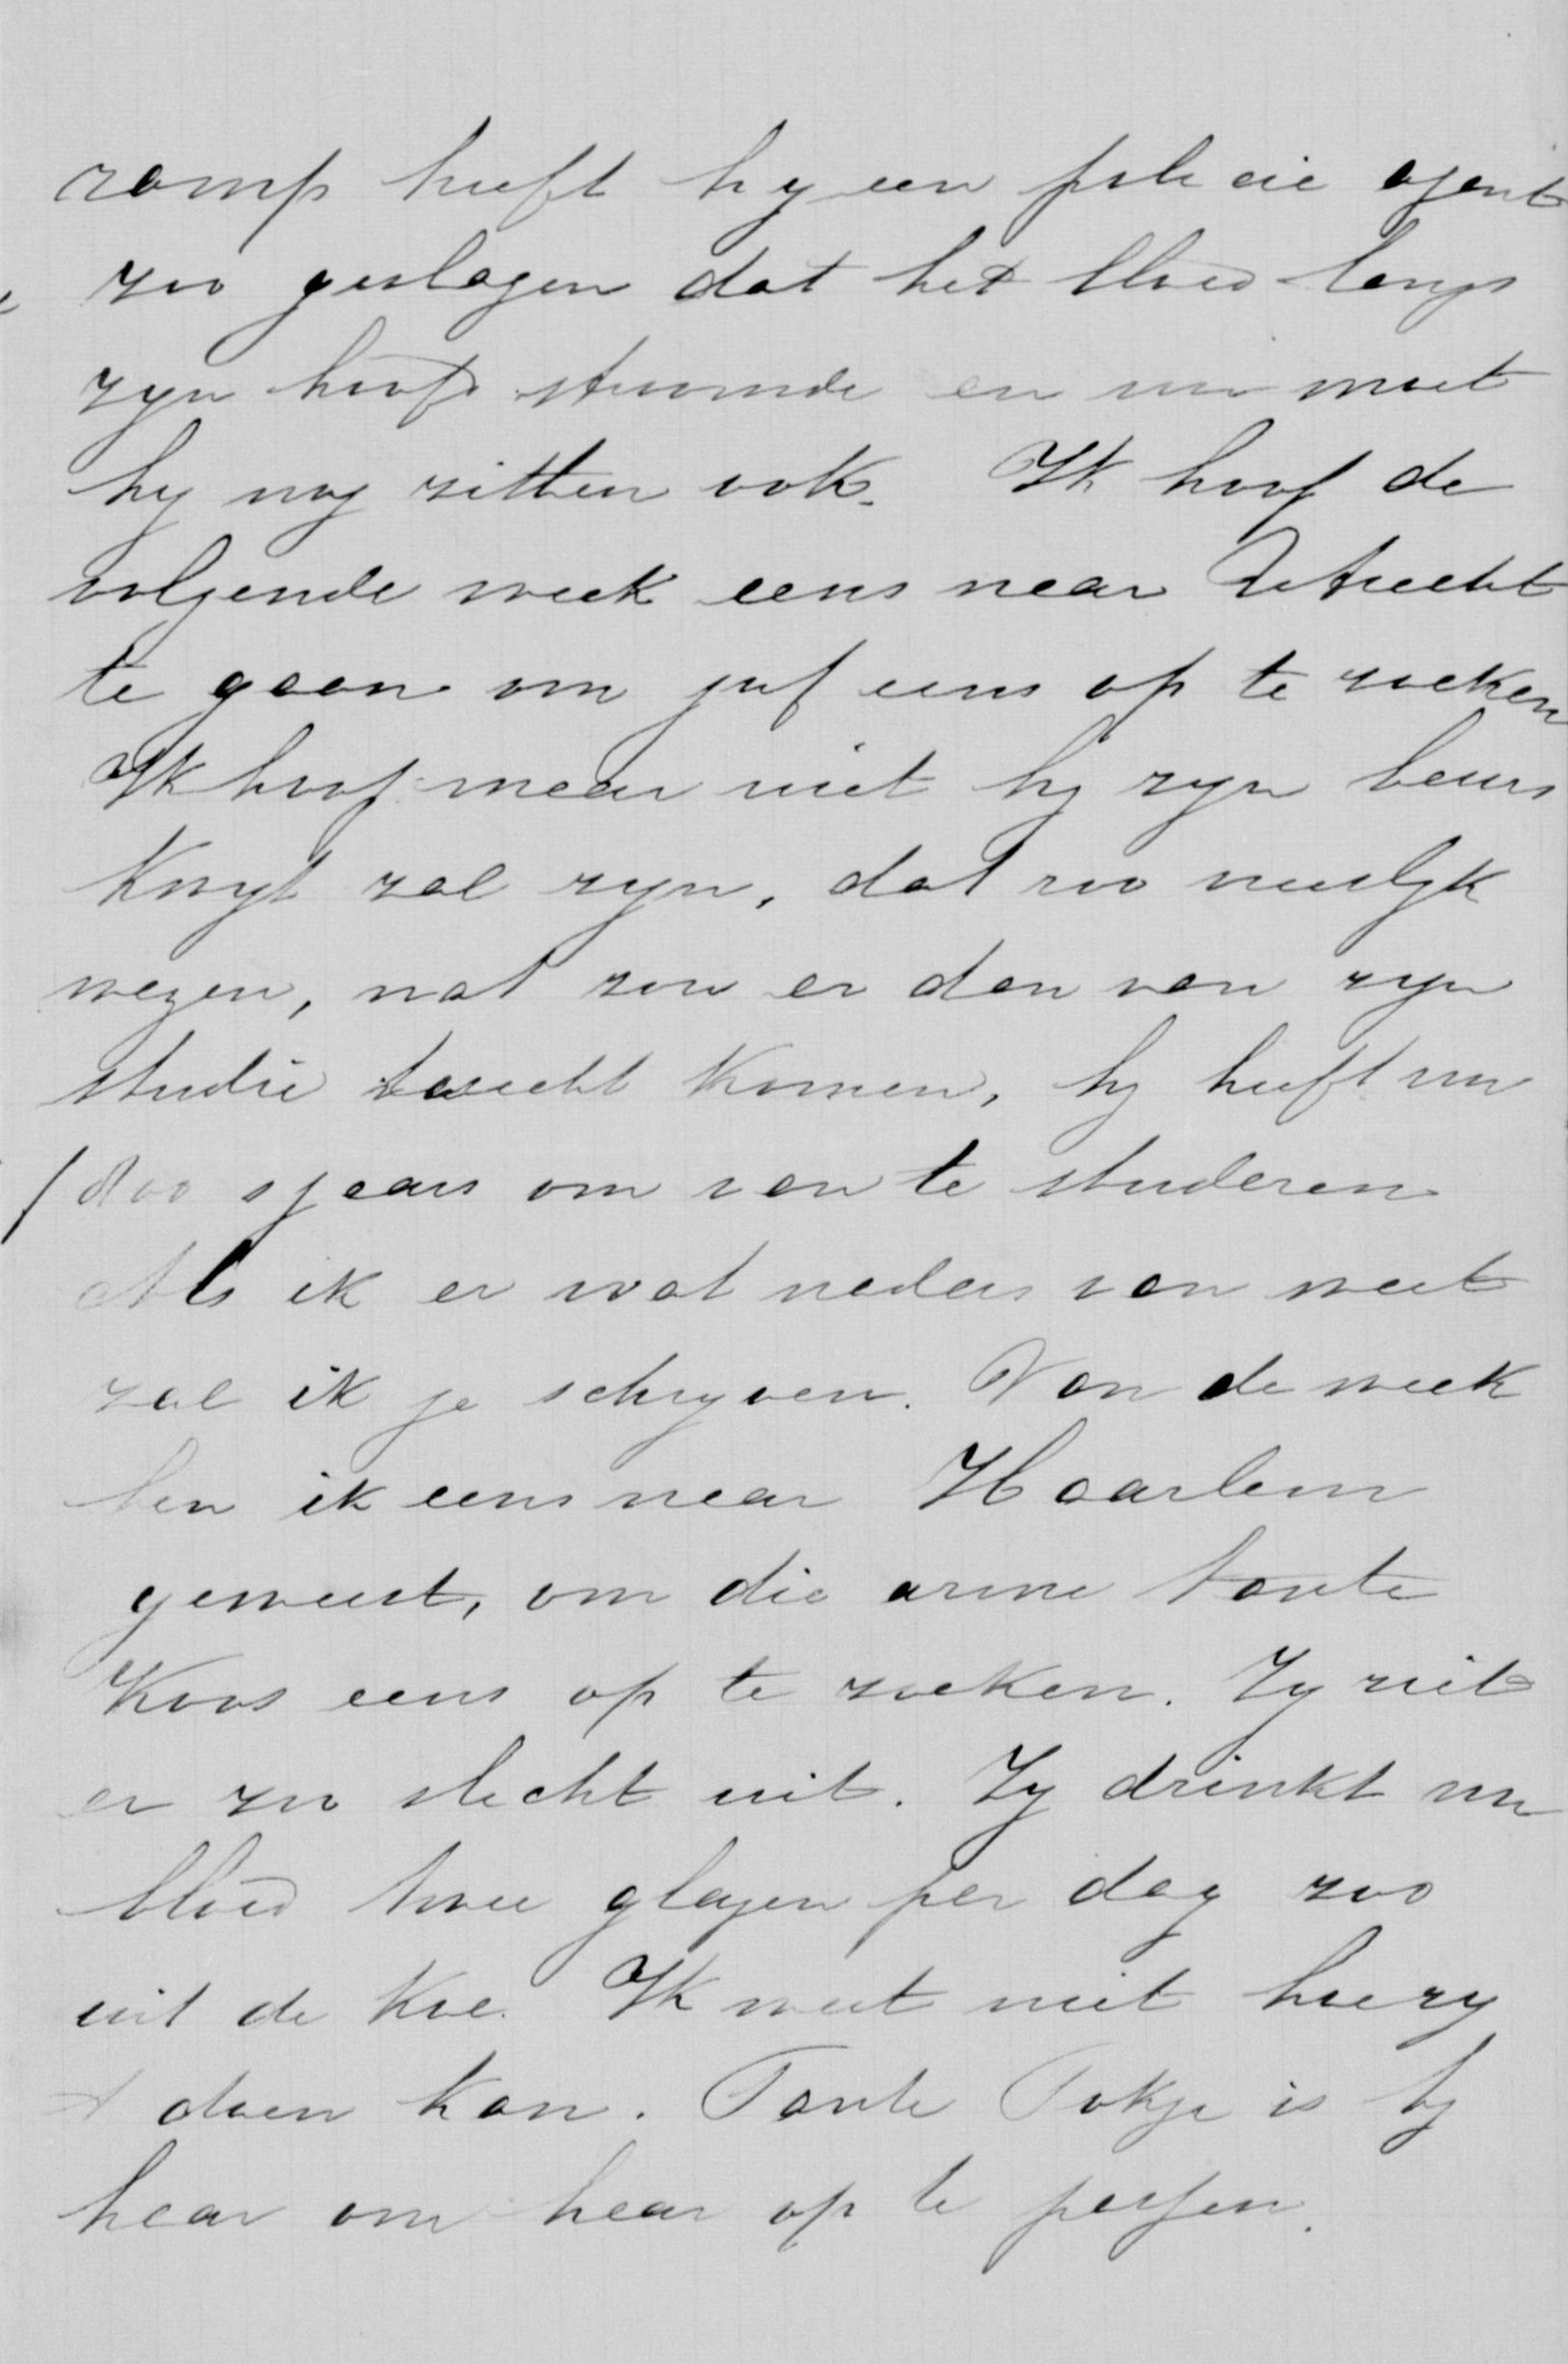 ramp heeft hy een policie agent
zoo geslagen dat het bloed langs
zyn hoofd stroomde en nu moet
hy nog zitten ook. Ik hoop de
volgende week eens naar Utrecht
te gaan om juf eens op te zoeken
Ik hoop maar niet hy zyn beurs
kwyt zal zyn, dat zoo
wezen, wat zou er dan van zyn
studie terecht komen, hy heeft nu
/ doo 9 jaar om van te studeren
Als ik er wat naders van weet
zal ik je schryven. Van de week
ben ik eens naar Haarlem
geweest, om die arme tante
Koos eens op te zoeken. Zy ziet
er zoo slecht uit. Zy drinkt nu
bloed twee glazen per dag zoo
uit de koe. Ik weet niet hoe zy
't doen kan. Tante is by
haar om haar op te passen.